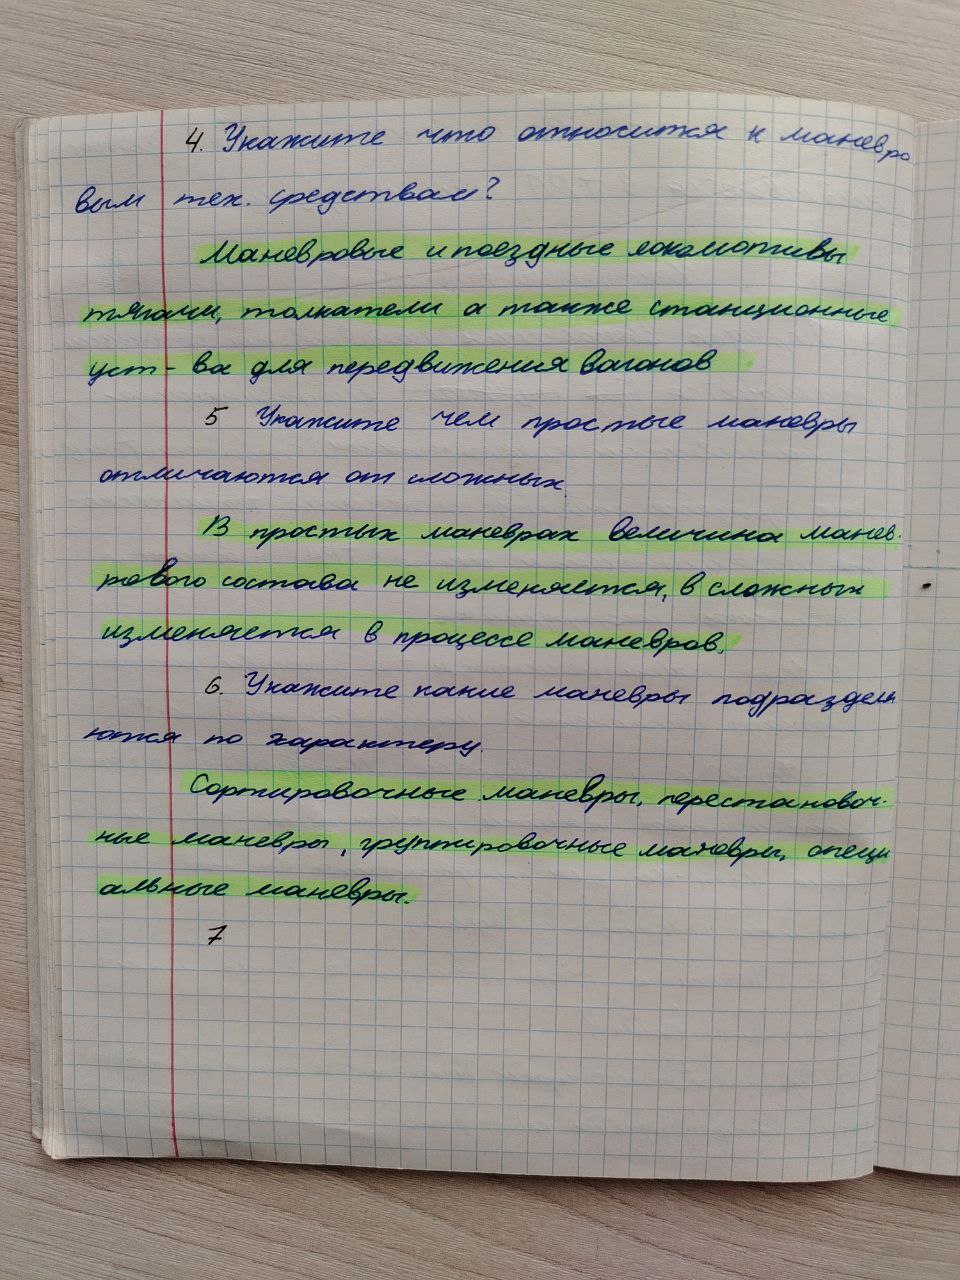 4. Укажите что относится к маневро
вым тех. средствам?
Маневровые и поездные локомотивы
тягачи, толкатели а также станционные
уст-ва для передвижения вагонов
5 Укажите чем простые маневры
отличаются от сложных.
В простых маневрах величина манев-
рового состава не изменяется, в сложных
изменяется в процессе маневров.
6. Укажите какие маневры подраздел
яются по характеру.
Сортировочные маневры, перестановоч-
ные маневры, группировочные маневры, специ
альные маневры.
7